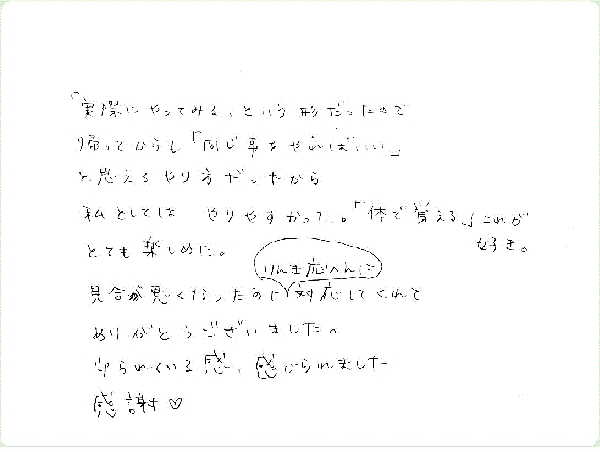 「実際にやってみる」という形だったので
帰ってからも「同じ事をやればいい」
と思えるやり方だったから
私としては やりやすかった。「体で覚える」これが
好き。
とても楽しめた。
りんき応へんに
具合が悪くなったのに対応してくれて
ありがとうございました。
守られている感、感じられました
感謝♡